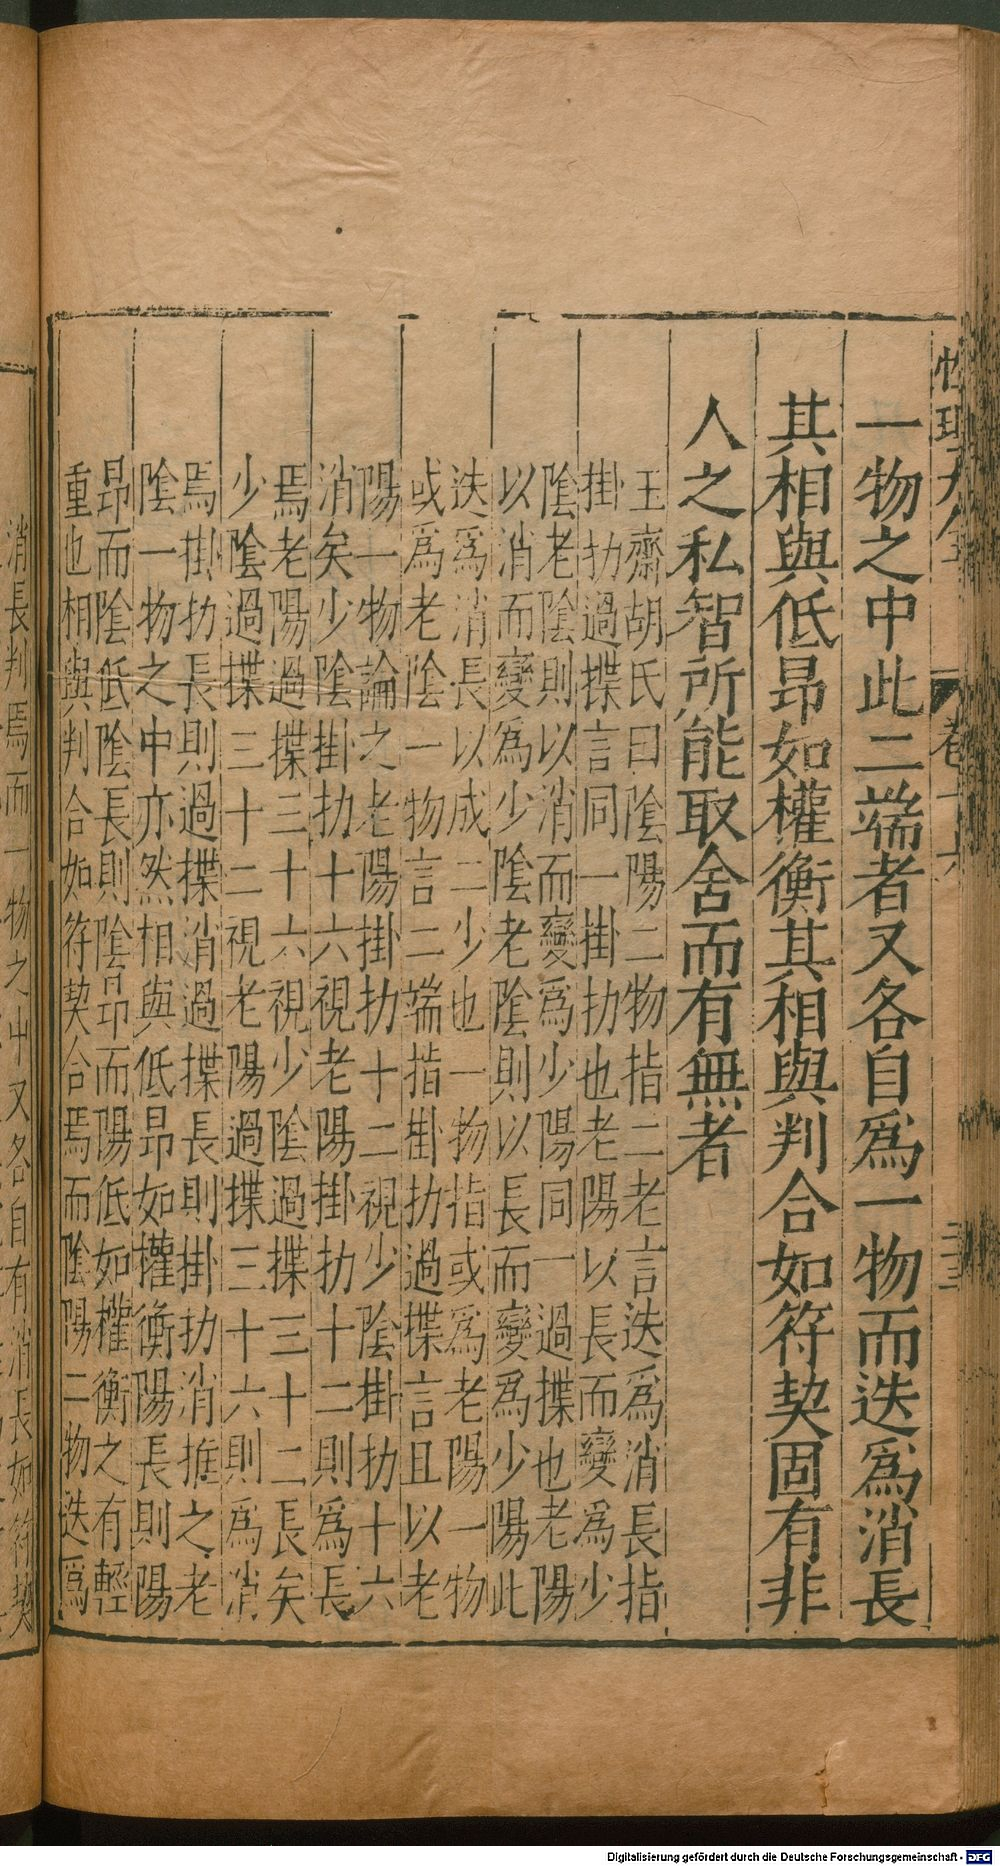 性理大全 卷十六
一物之中此二端者又各自爲一物而迭爲消長
其相與低昂如權衡其相與判合如符契固有非
人之私智所能取舍而有無者
玉齋胡氏曰陰陽二物指二老言迭爲消長指
掛扐過揲言同一掛扐也老陽以長而變爲少
陰老陰則以消而變爲少陽同一過揲也老陽
以消而變爲少陰老陰則以長而變爲少陽此
迭爲消長以成二少也一物指或爲老陽一物
或爲老陰一物言二端指掛扐過揲言且以老
陽一物論之老陽掛扐十二視少陰掛扐十六
消矣少陰掛扐十六視老陽掛扐十二則爲長
焉老陽過揲三十六視少陰過揲三十二長矣
少陰過揲三十二視老陽過揲三十六則爲消
焉掛扐長則過揲消過揲長則掛扐消推之老
陰一物之中亦然相與低昂如權衡陽長則陽
昂而陰低陰長則陰昂而陽低如權衡之有輕
重也相與判合如符契合焉而陰陽二物迭爲
消長判焉而一物之中又各自有消長如符契
Digitalisierung gefördert durch die Deutsche Forschungsgemeinschaft - DFG